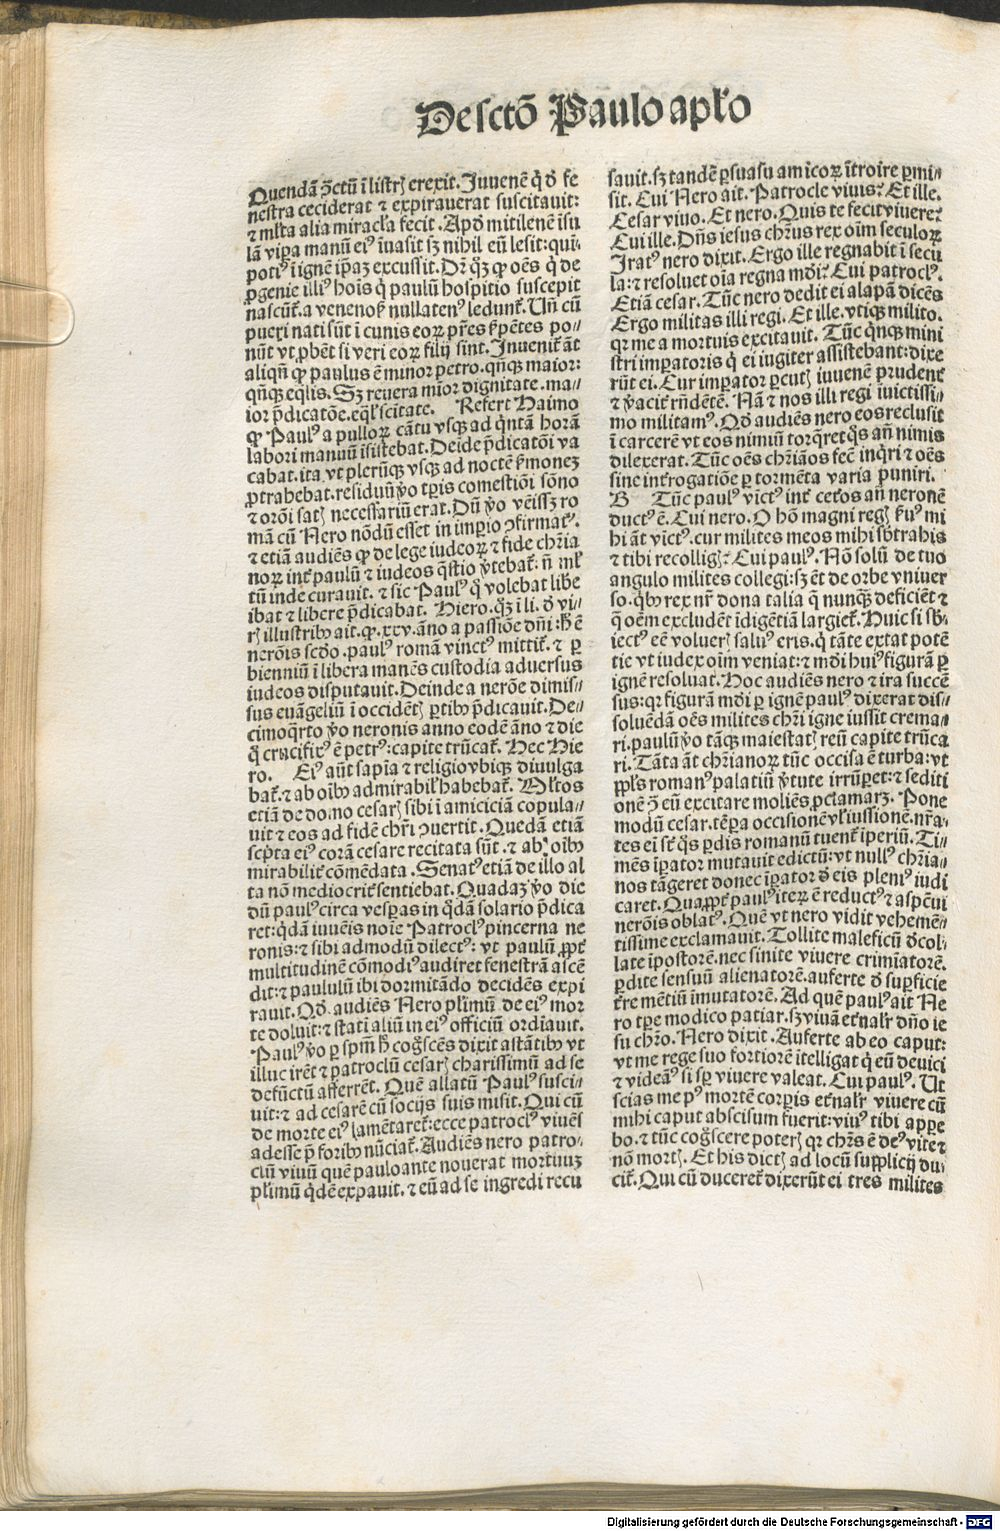 De sctō Paulo apło
Quendā ꝯctū ī listrꝫ erexit. Juvenē q̇ ď fe
nestra ceciderat ⁊ expiraverat suscitavit:
⁊ młta alia miracła fecit. Apď mitilenē īsu
lā viꝑa manū eiꝰ īuasit sꝫ nihil eū lesit: qui⸗
potiꝰ ī ignē ip̄aꝫ excussit. Dr̄ qꝫ ꝙ oēs q̇ de
ꝓgenie illiꝰ hoīs q̇ paulū hospitio suscepit
nascūt̄. a venenoꝭ nullatenꝰ leduntꝰ. Un̄ cū
pueri nati sūt ī cunis eoꝝ pr̄es ẜpētes po⸗
nūt vt ꝓbēt si veri eoꝝ filij sint. Inuenit̄ āt
aliqn̄ ꝙ paulus ē minor petro. qn̄qꝫ maior:
qn̄qꝫ eq̄lis. Sꝫ revera mīor dignitate. ma⸗
ior p̄dicatōe. eq̄ł scītate. Refert Haimo
ꝙ Paulꝰ a pulloꝝ cātu vsqꝫ ad qntā horā
labori manuū īsistebat. Deīde p̄dicatōi va
cabat. ita vt pleruqꝫ vsqꝫ ad noctē ẜmoneꝫ
ꝓtrahebat. residuū ꝟo tp̄ris comestiōi sōno
⁊ orōi satꝭ necessariū erat. Dū ꝟo vēissꝫ ro
mā cū Nero nōdū esset in imꝑio ꝯfirmatꝰ.
⁊ etiā audiēs ꝙ de lege iudeoꝝ ⁊ fide chr̄ia
noꝝ int̄ paulū ⁊ iudeos q̄stio ꝟtebat̄. n̄ ml̄
tū inde curavit. ⁊ sic Paulꝰ q̇ volebat libe
ibat ⁊ libere p̄dicabat. Hiero. qꝫ ī li. ď vi⸗
rꝭ illustribꝰ ait. ꝙ .xxv. āno a passiōe dn̄i: h̄ ē
nerōis scďo. paulꝰ romā vinctꝰ mittit̄. ⁊ ꝑ
bienniū ī libera manēs custodia adversus
iudeos disputavit. Deinde a nerōe dimis⸗
sus euāgeliū ī occidētꝭ ꝑtibꝰ p̄dicavit. De⸗
cimoqrto ꝟo neronis anno eodē āno ⁊ die
q̇ crucifixꝰ ē petrꝰ: capite trūcat̄. Hec Hie
ro. Eiꝰ aūt sapīa ⁊ religio vbiqꝫ divulga
bat̄. ⁊ ab oībꝰ admirabił habebat̄. Młtos
etiā de domo cesarꝭ sibi ī amiciciā copula⸗
vit ⁊ eos ad fidē chr̄i ꝯvertit. Quedā etiā
scp̄ta eiꝰ corā cesare recitata sūt. ⁊ ab oībꝰ
mirabilit̄ cōmēdata. Senatꝰ etiā de illo al
ta nō mediocrit̄ sentiebat. Quadaꝫ ꝟo die
dū paulꝰ circa vesꝑas in q̇dā solario p̄dica
ret: q̇dā iuvēis noīe Patroclꝰ pincerna ne
ronis: ⁊ sibi admodū dilectꝰ: vt paulū ꝓpt̄
multitudinē cōmodiꝰ audiret fenestrā ascē
dit: ⁊ paululū ibi dormitādo decidēs expi
ravit. Qď audiēs Nero pl̄imū de eiꝰ mor
te doluit: ⁊ stati aliū in eiꝰ officiū ordiavit.
Paulꝰ ꝟo ꝑ spm̄ h̄ cog̃scēs dixit astātibꝰ vt
illuc irēt ⁊ patroclū cesarꝭ charissimū ad se
defūctū afferrēt. Quē allatū Paulꝰ susci⸗
vit: ⁊ ad cesarē cū socijs suis misit. Qui cū
de morte eiꝰ lamētaret̄: ecce patroclꝰ viuēs
adesse p̄ foribꝰ nūciat̄. Audiēs nero patro⸗
clū vivū quē paulo ante noverat mortuuꝫ
pl̄imū q̇dē expavit. ⁊ eū ad se ingredi recu
savit. sꝫ tandē ꝑsuasu amicoꝝ ītroire ꝑmi⸗
sit. Cui Nero ait. Patrocle vivis? Et ille.
Cesar vivo. Et nero. Quis te fecit vivere?
Cui ille. Dn̄s iesus chr̄us rex oīm seculoꝝ
Iratꝰ nero dixit. Ergo ille regnabit ī secu
la: ⁊ resoluet oīa regna mďi? Cui patroclꝰ.
Etiā cesar. Tūc nero dedit ei alapā dicēs
Ergo militas illi regi. Et ille. vtiqꝫ milito.
qꝛ me a mortuis excitavit. Tūc qnqꝫ mini
stri imꝑatoris q̇ ei iugiter assistebant: dixe
rūt ei. Cur imꝑator ꝑcutꝭ iuvenē prudent̄
⁊ ꝟacit̄ rn̄dētē. Nā ⁊ nos illi regi īvictissi⸗
mo militamꝰ. Qď audiēs nero eos reclusit
ī carcerē vt eos nimiū torq̄ret q̇s an̄ nimis
dilexerat. Tūc oēs chr̄iāos fec̄ inq̇ri ⁊ oēs
sine int̄rogatiōe ꝑ tormēta varia puniri.
B Tūc paulꝰ victꝰ int̄ cet̄os an̄ neronē
ductꝰ ē. Cui nero. O hō magni regꝭ ẜuꝰ mi
hi āt victꝰ. cur milites meos mihi sb̄trahis
⁊ tibi recolligꝭ? Cui paulꝰ. Nō solū de tuo
angulo milites collegi: sꝫ ēt de orbe vniver
so. qbꝰ rex nr̄ dona talia q̄ nunqꝫ deficiēt ⁊
q̄ oēm excludēt īdigētiā largiet̄. Huic si sb̄⸗
iectꝰ eē volueꝭ salvꝰ eris. q̄ tāte extat potē
tie vt iudex oīm veniat: ⁊ mďi huiꝰ figurā ꝑ
ignē resoluat. Hoc audiēs nero ⁊ ira succē
sus: qꝛ figurā mďi ꝑ ignē paulꝰ dixerat dis⸗
soluēdā oēs milites chr̄i igne iussit crema⸗
ri. paulū ꝟo tāqꝫ maiestatꝭ reū capite trūca
ri. Tāta āt chr̄ianoꝝ tūc occisa ē turba: vt
ppłs romanꝰ palatiū ꝟtute irrūꝑet: ⁊ sediti
onē ꝯ eū excitare moliēs ꝓclamarꝫ. Pone
modū cesar. tēꝑa occisionē vł iussionē. nr̄a⸗
tes ei st̄ q̇s ꝑdis romanū tuent̄ īperiū. Ti⸗
mēs īꝑator mutavit edictū: vt nullꝰ chr̄ia⸗
nos tāgeret donec īꝑator ď eis pleniꝰ iudi
caret. Quaꝓpt̄ paulꝰ iteꝝ ē reductꝰ ⁊ aspcūi
nerōis oblatꝰ. Quē vt nero vidit vehemē⸗
tissime exclamavit. Tollite maleficū ďcol⸗
late īpostorē. nec sinite vivere crimīatorē.
ꝑdite sensuū alienatorē. auferte ď suꝑficie
t̄re mētiū īmutatorē. Ad quē paulꝰ ait Ne
ro tp̄e modico patiar. sꝫ vivā et̄nalr̄ dn̄o ie
su chr̄o. Nero dixit. Auferte ab eo caput:
vt me rege suo fortiorē ītelligat q̇ eū devici
⁊ videāꝰ si sꝑ vivere valeat. Cui paulꝰ. Ut
scias me pꝰ mortē corꝑis et̄nalr̄ vivere cū
mihi caput abscisum fuerit: vivꝰ tibi appe
bo. ⁊ tūc cog̃scere poterꝭ qꝛ chr̄s ē deꝰ vite ⁊
nō mortꝭ. Et his dictꝭ ad locū supplicij du⸗
cit̄. Qui cū duceret̄ dixerūt ei tres milites
Digitalisierung gefördert durch die Deutsche Forschungsgemeinschaft - DFG